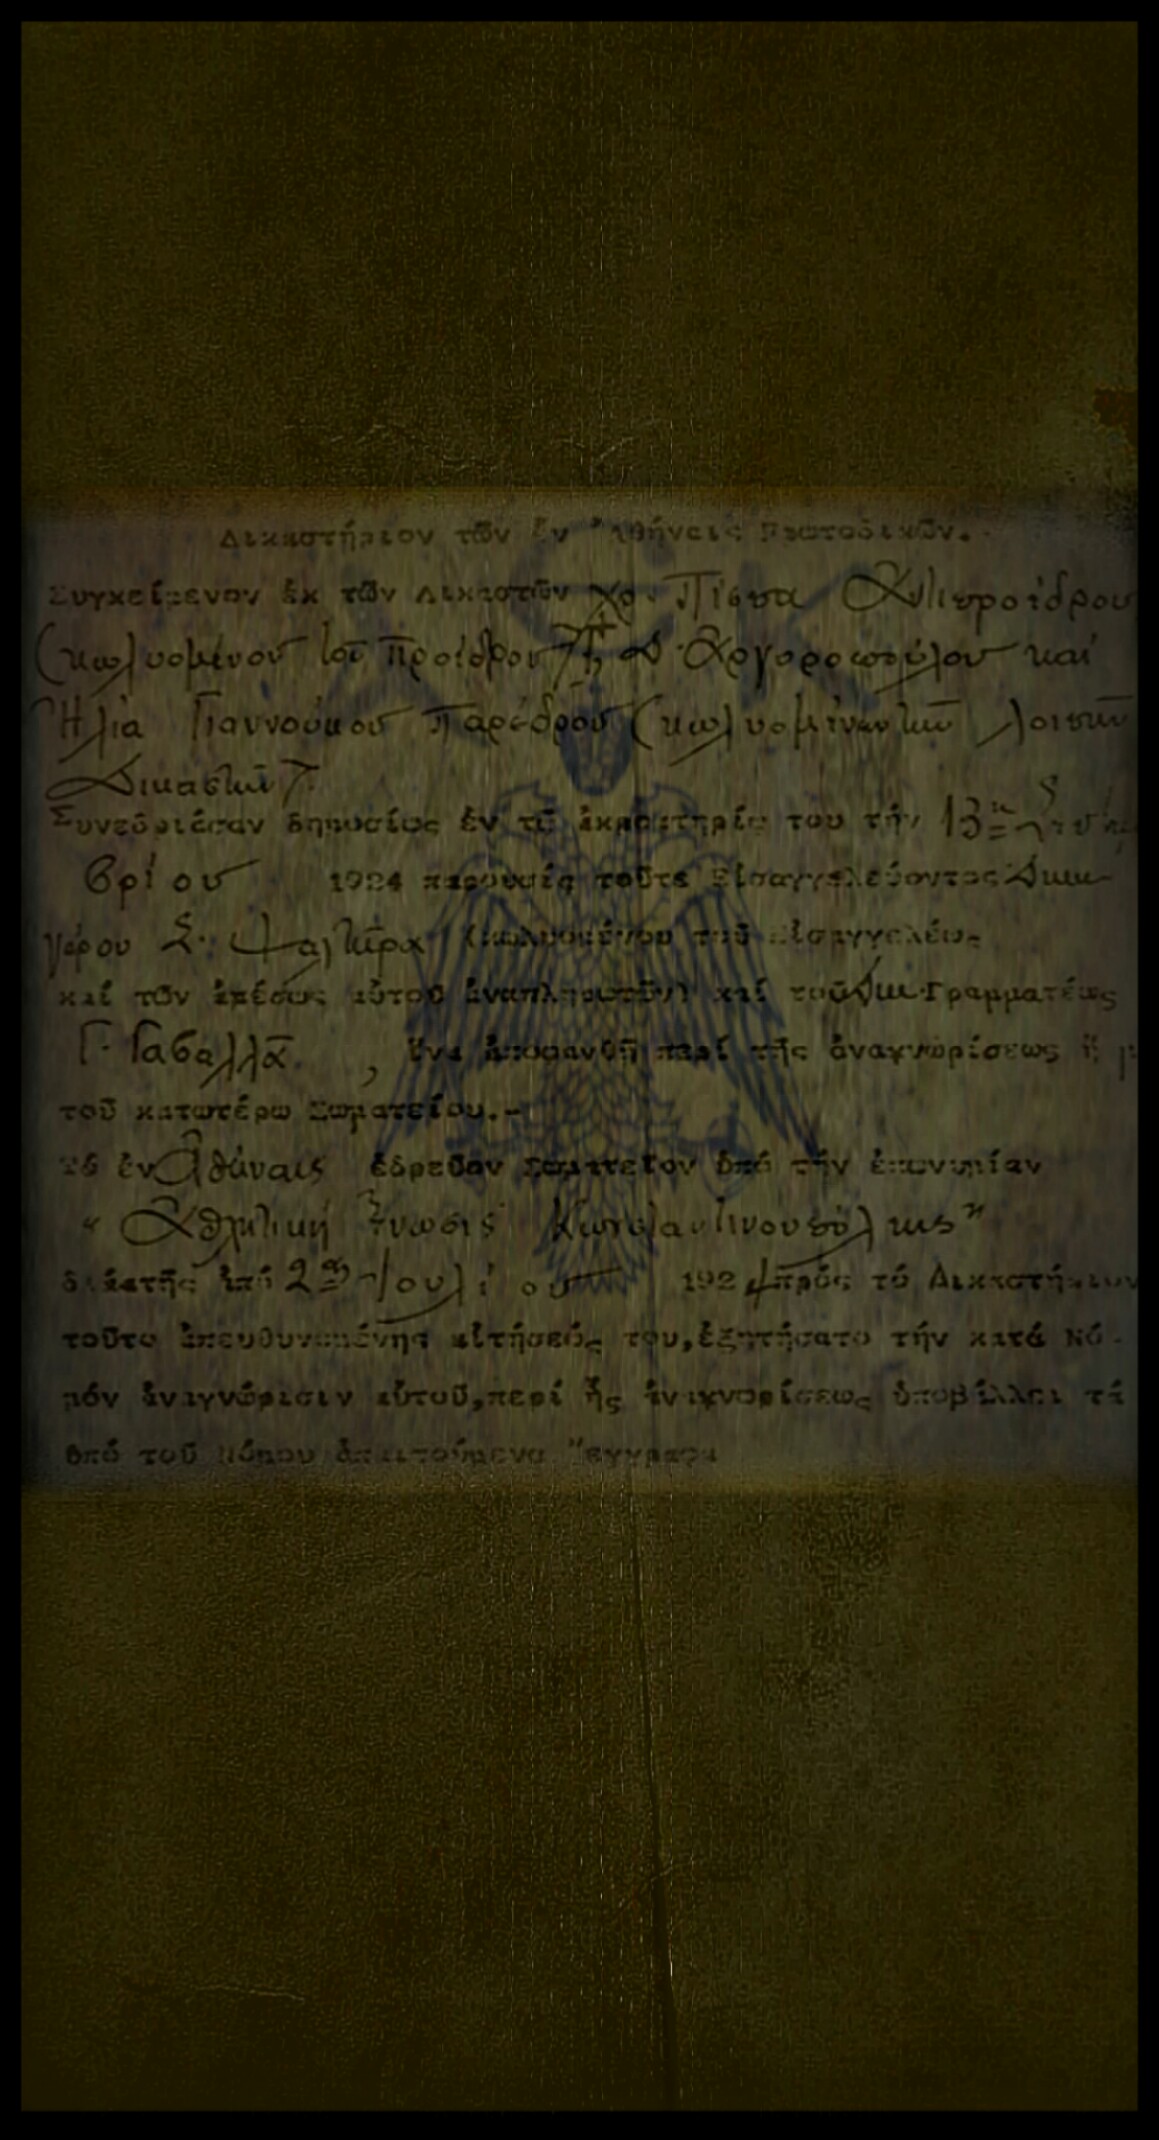 Δικαστήριον τῶν ἐν Ἀθήναις Πρωτοδικῶν.
Συγκείμενον ἐκ τῶν Δικαστῶν Χρ. Ἀντιπροέδρου
(κωλυομένου τοῦ Προέδρου), Δ. Ἀργυροπούλου καί
Ἠλία Γιαννούκου Παρέδρου (κωλυομένων τῶν λοιπῶν
Δικαστῶν).
Συνεδριάσαν δημοσίως ἐν τῷ ἀκροατηρίῳ του τήν 13
βρίου 1924 παρουσίᾳ τοῦτε Εἰσαγγελεύοντος Δικη-
γόρου Σ. (κωλυομένου τοῦ Εἰσαγγελέως
καί τῶν ἀμέσως αὐτοῦ ἀναπληρωτῶν) καί τοῦ Γραμματέως
Γ. , ἵνα ἀποφανθῇ περί τῆς ἀναγνωρίσεως ἤ μ
τοῦ κατωτέρω Σωματείου.-
Τό ἐν Ἀθήναις ἑδρεῦον Σωματεῖον ὑπό τήν ἐπωνυμίαν
" Ἀθλητική Ἕνωσις Κωνσταντινουπόλεως "
διά τῆς ἀπό 2ας Ἰουλίου 1924 πρός τό Δικαστήριον
τοῦτο ἀπευθυνομένης αἰτήσεώς του, ἐξητήσατο τήν κατά Νό-
μόν ἀναγνώρισιν αὐτοῦ, περί ἧς ἀναγνωρίσεως ὑποβάλλει τά
ὑπό τοῦ Νόμου ἀπαιτούμενα ἔγγραφα
ΑΕΚ